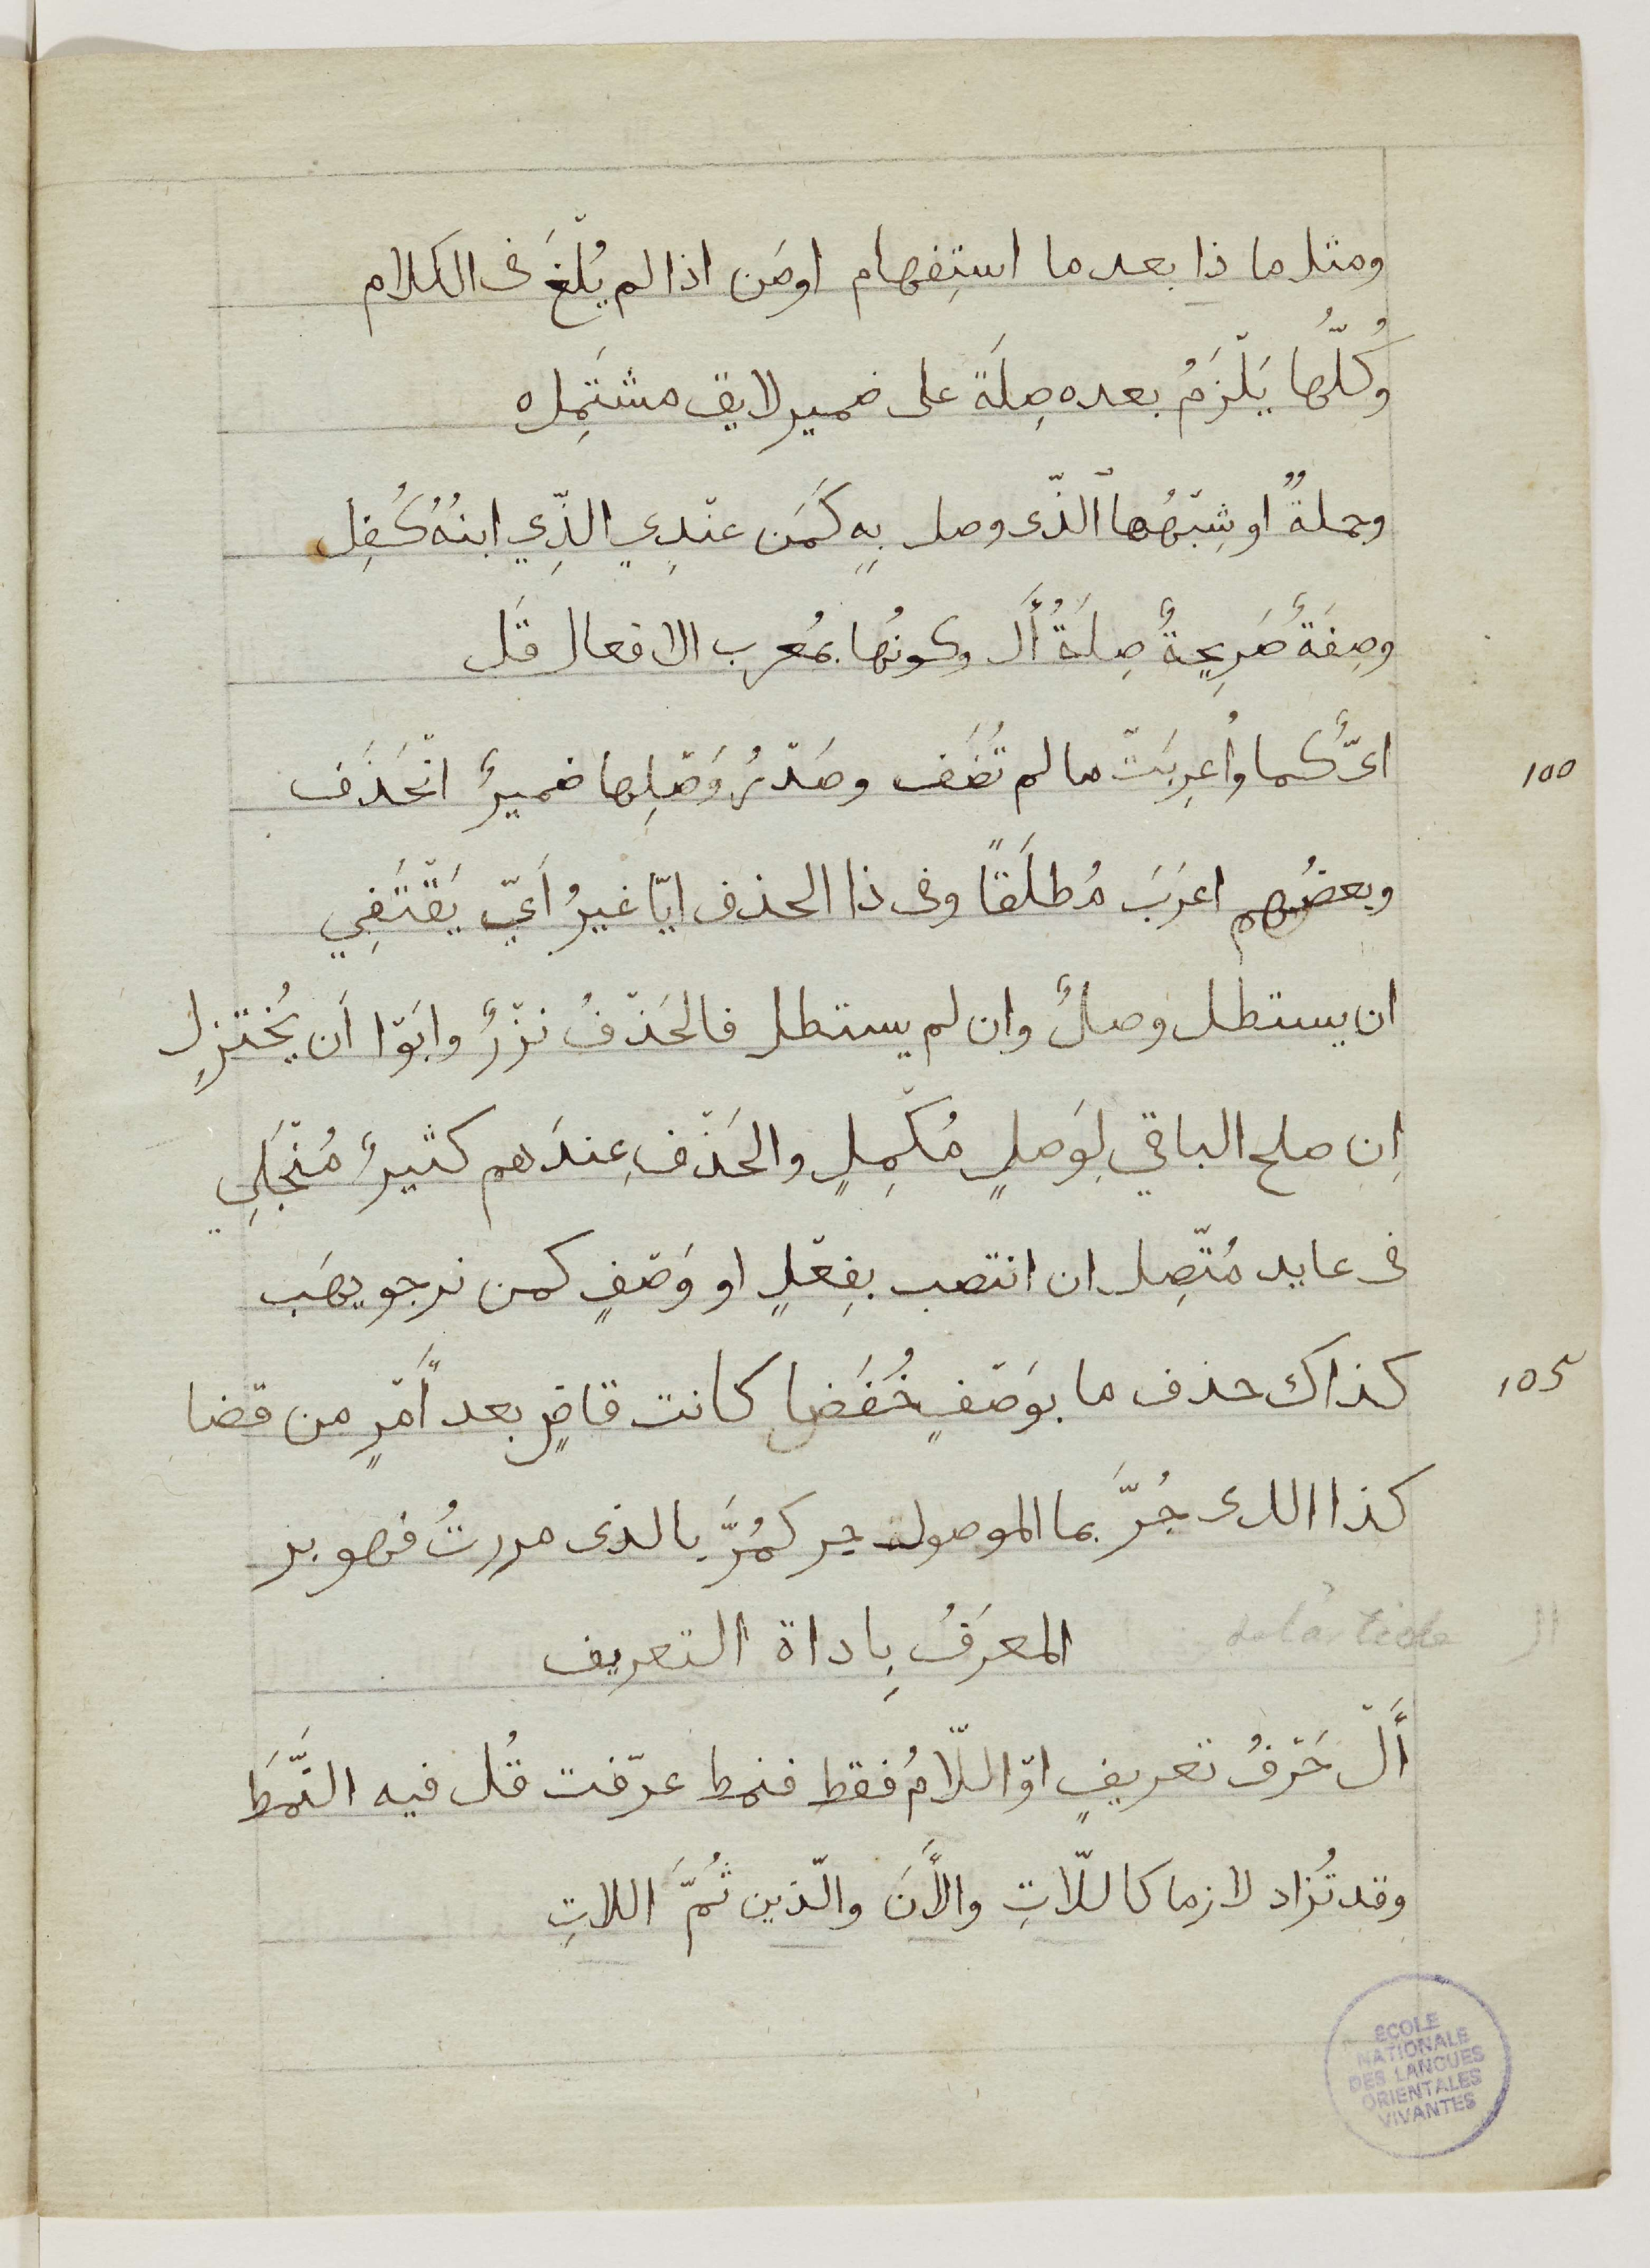 ومثل ما ذا بعد ما استِفهام اومَن اذا لم يُلْغَ فى الكلام
وُكُلّها يَلْزَمُ بعده صِلَة على ضمير لايق مشتَمِله
وجملةٌ او شِبْهُها الذّى وصل بِهِ كَمَن عنْدِي الذِّي ابنُهُ كُفِل
وصِفَةٌ صَرِيحةٌ صِلَةُ أَل وكونُها بمُعرب الافعال قَل
100 اىٌّ كما وأُعرِبَتْ ما لم تُضَف وصَدْرُ وَصْلِها ضميرٌ انْحَذَف
وبعضُهم اعرَبَ مُطلَقًا وفى ذا الحذف ايّا غيرُ أَيّ يَقْتَفِي
ان يستطل وصلٌ وان لم يستطل فالحَذْفُ نزْرٌ وابَوْا أَن يُختزِل
اِن صلح الباقي لِوَصلٍ مُكْمِلٍ والحَذْف عِندَهم كثيرٌ مُنْجَلِي
فى عايد مُتّصِل ان انتصب بِفِعْلٍ او وَصْفٍ كمن نرجو يهَب
105 كذاك حذف ما بوَصْفٍ خُفَضا كانت قاضٍ بعد أَمْرٍ من قضا
كذا الدى جُرَّ بما الموصول جر كمُرَّ بالذى مررتُ فهو بر
ال de l'article المعرَفُ بِاداة التعريف
أَلْ حَرْفُ تعريفٍ اوْ اللّامُ فقط فنمط عرّفت قُل فيه النَّمَط
وقد تُزاد لازما كاللّاتِ والأَنَ والّذين ثُمَّ اللاتِ
ECOLE
NATIONALE
DES LANGUES
ORIENTALES
VIVANTES